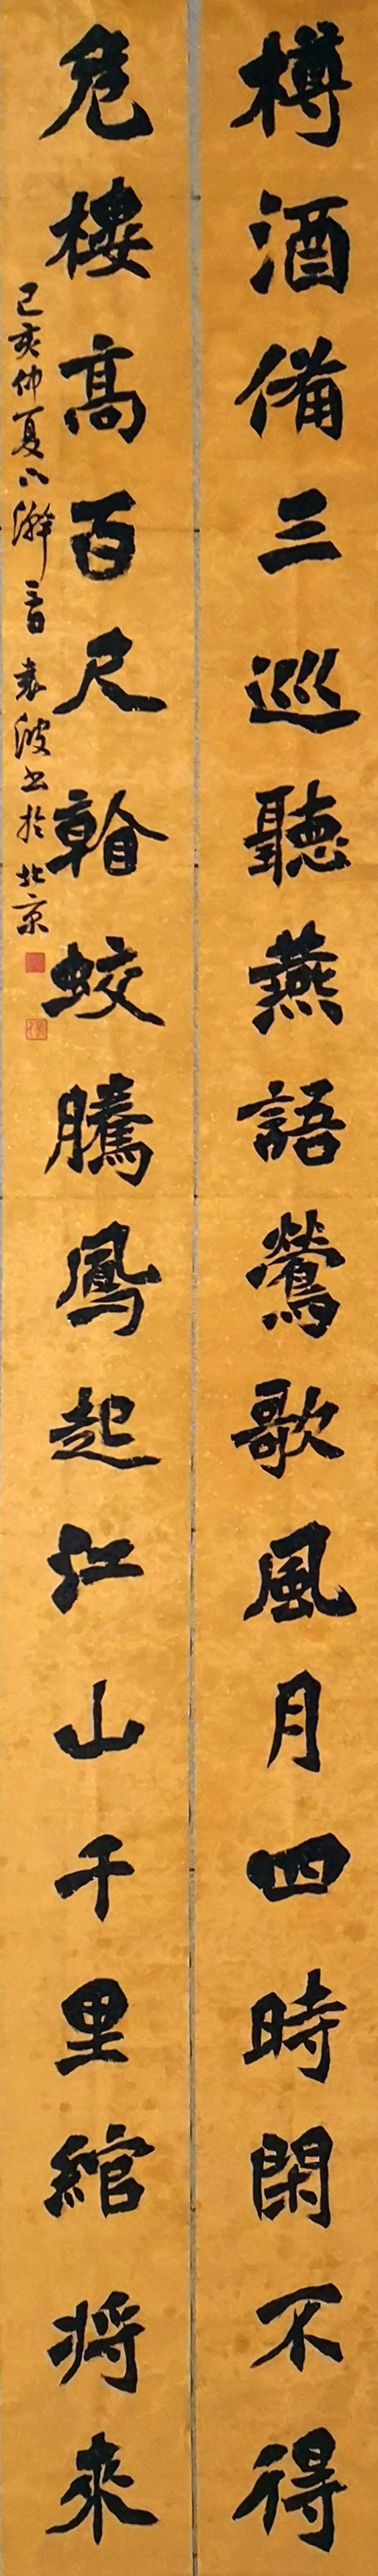 樽酒備三巡聽燕語鶯歌風月四時閑不得
危樓高百尺瞻蛟騰鳳起江山千里綰将來
己亥仲夏八瀞言袁波书於北京